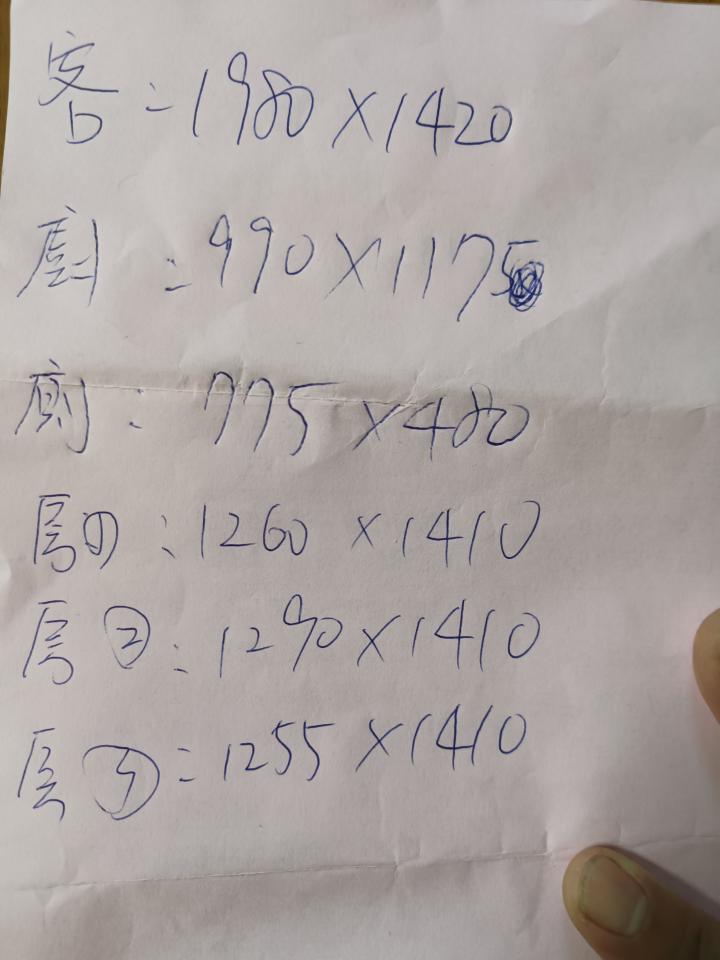 客：1980×1420
廚：990×1175
廁：775×480
房①：1260×1410
房②：1290×1410
房③：1255×1410